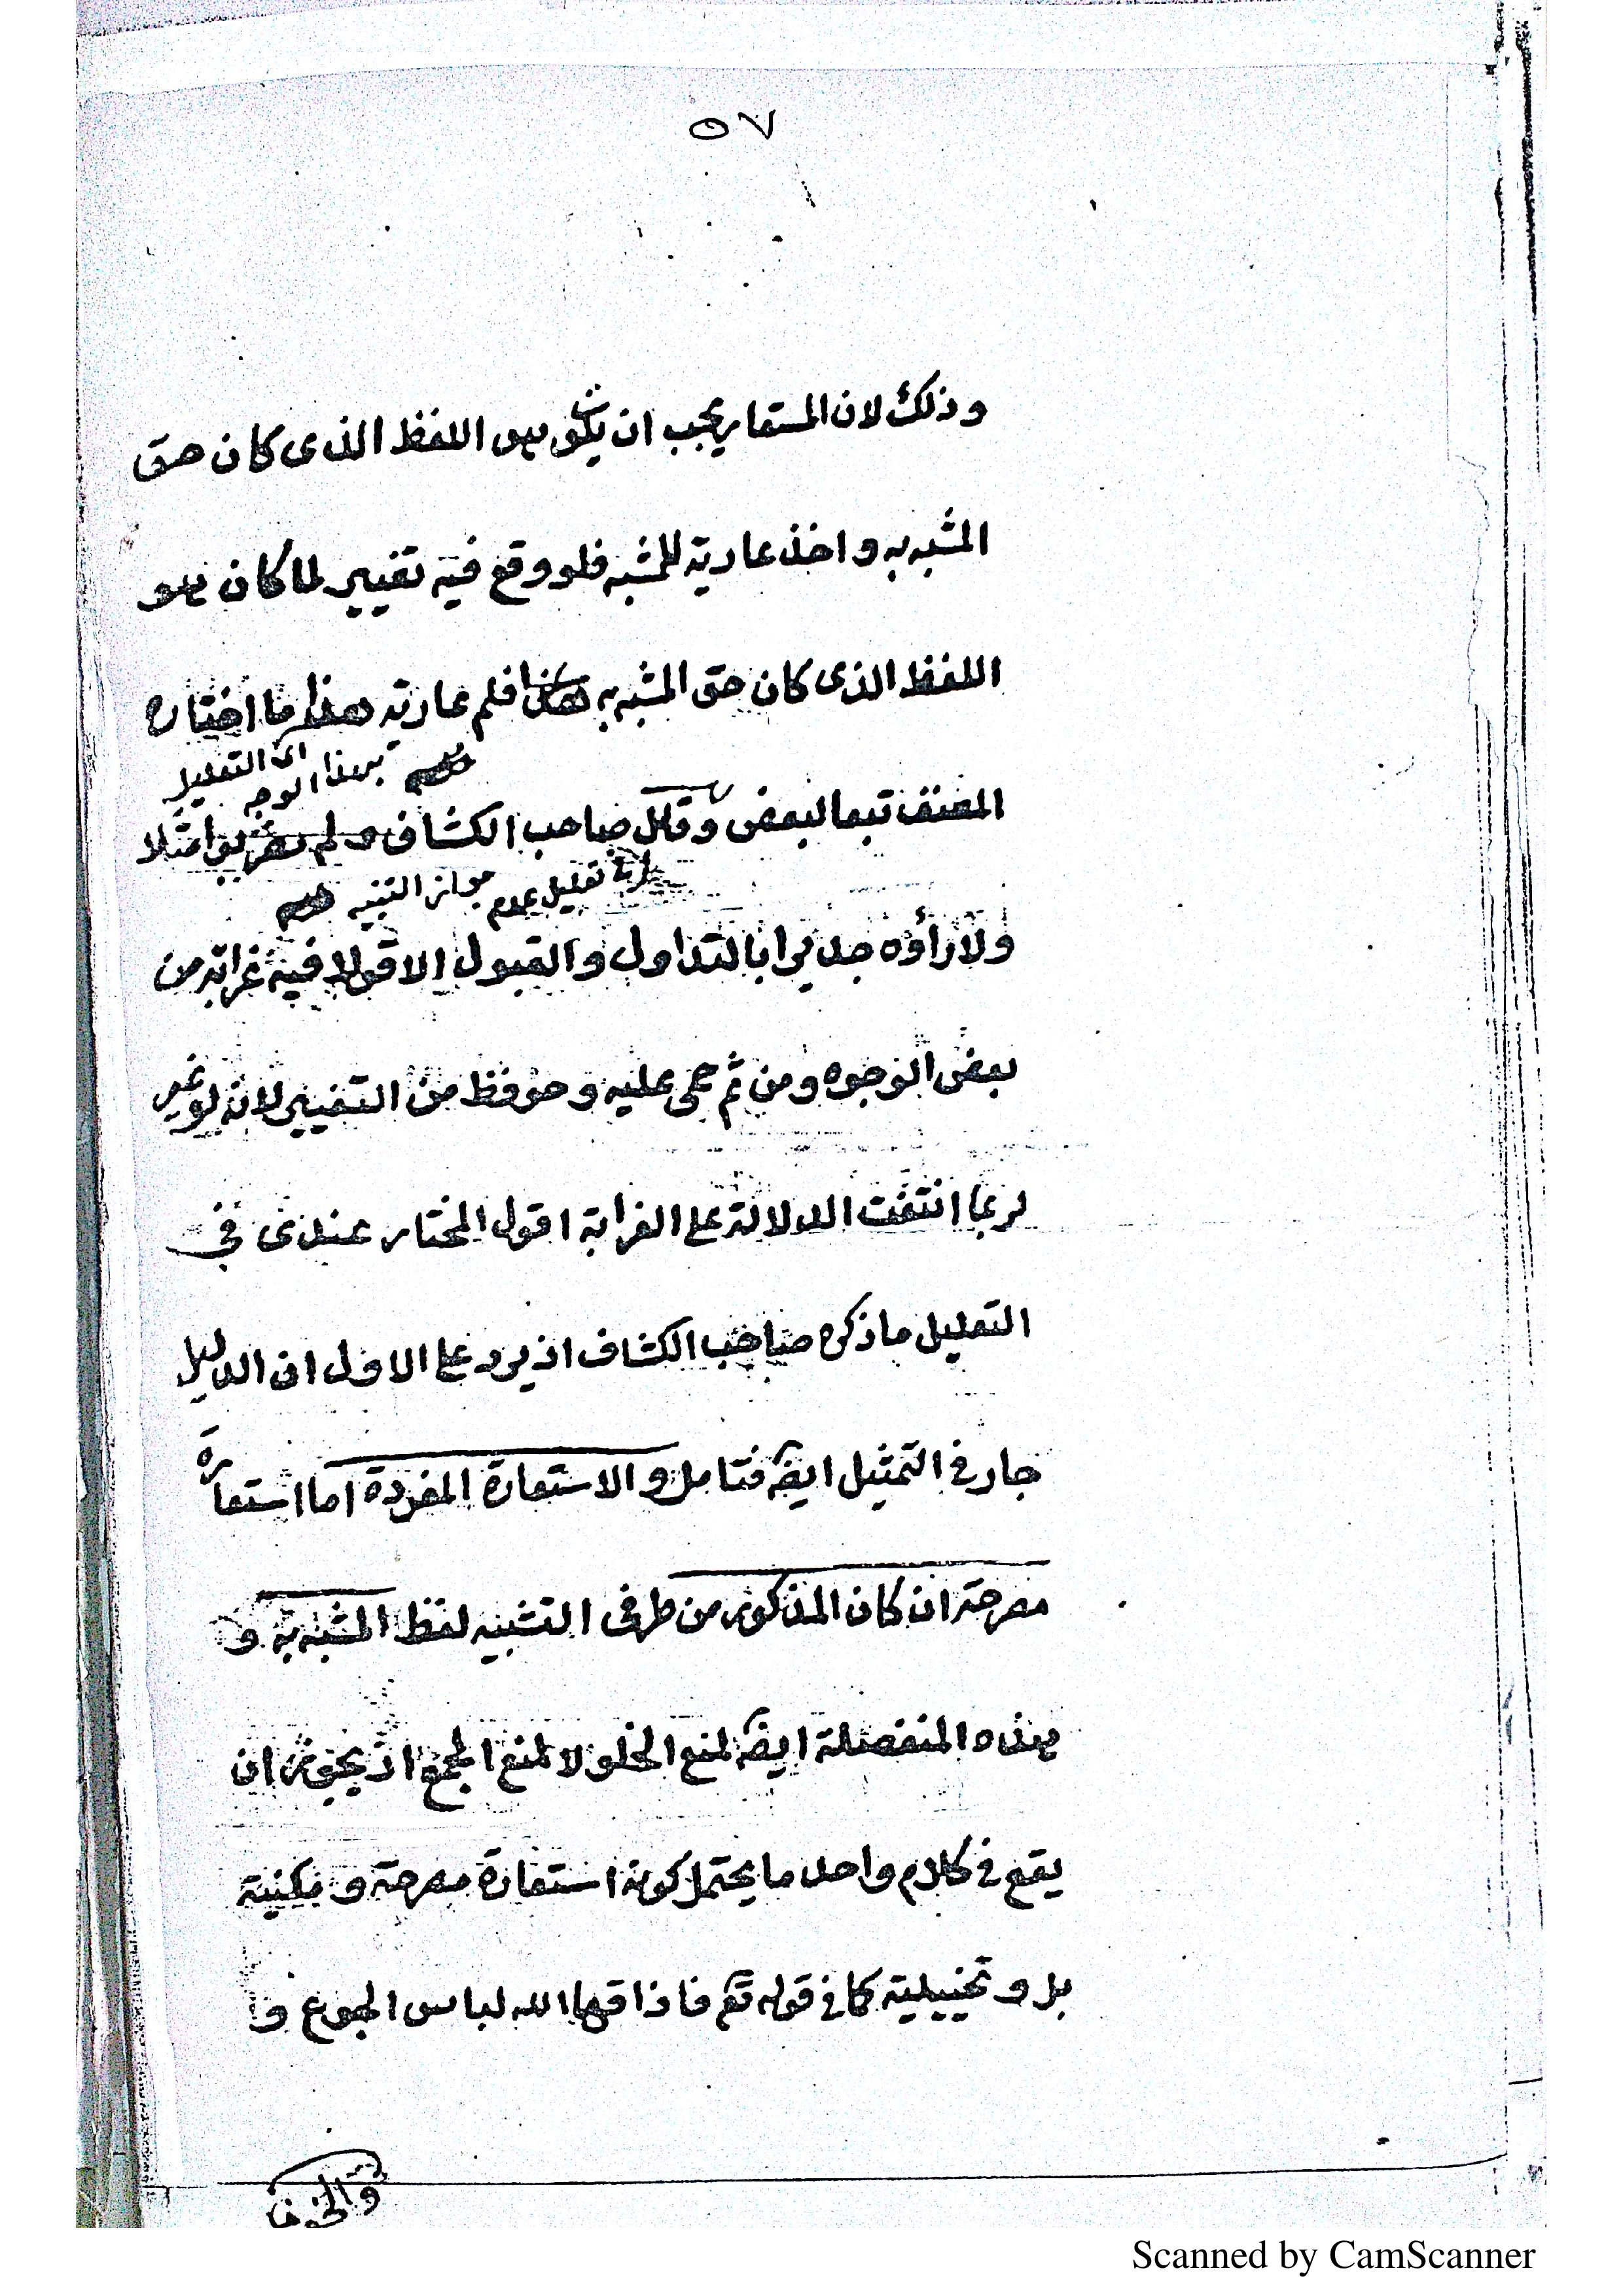 ٥٧
وذلك لان المستعار يجب ان يكون هو اللفظ الذى كان حق
المشبه به واخذ عارية للمشبه فلو وقع فيه تغيير لما كان هو
اللفظ الذى كان حق المشبه به فلم عارية هذا ما اختاره
اى التعليل
بهذا الوجه
المصنف تبعا لبعض وقال صاحب الكشاف ولم يضربوا مثلا
تعليل عدم جواز التنبيه
ولا رأوه جديرا بالتداول والقبول الا قولا فيه غرابة من
بعض الوجوه ومن ثم حمى عليه وحوفظ من التغيير لانه لو غير
لربما انتفت الدلالة على الغرابة اقول المختار عندى فى
التعليل ما ذكره صاحب الكشاف اذ يرد على الاول ان الدليل
جار فى التمثيل ايضا فتامل والاستعارة المفردة اما استعارة
مصرحة ان كان المذكور من طرفى التشبيه لفظ المشبه به و
هذه المنفصلة ايضا لمنع الخلو لا لمنع الجمع اذ يجوز ان
يقع فى كلام واحد ما يحتمل كونه استعارة مصرحة ومكنية
بل وتخييلية كما فى قوله تعم فاذاقها الله لباس الجوع و
والخوف
Scanned by CamScanner